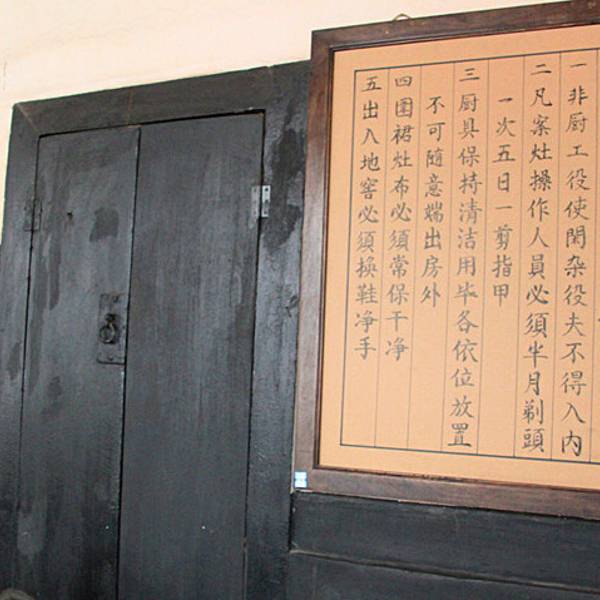 一非厨工役使閑杂役夫不得入内
二凡案灶操作人員必須半月剃頭
一次五日一剪指甲
三厨具保持清洁用毕各依位放置
不可隨意端出房外
四围裙灶布必須常保干净
五出入地窖必須换鞋净手